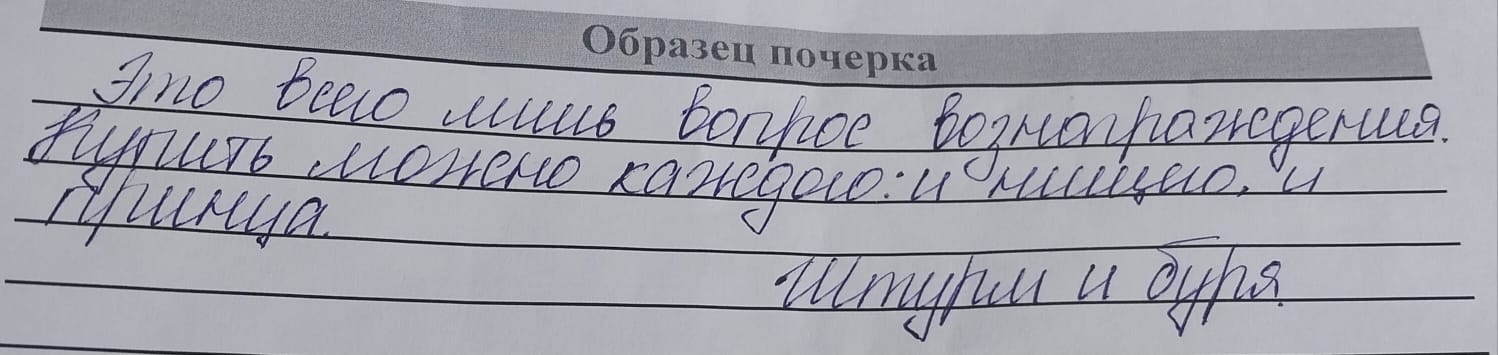 Образец почерка
Это всего лишь вопрос вознаграждения.
Купить можно каждого: и нищего, и
принца.
Штурм и буря.